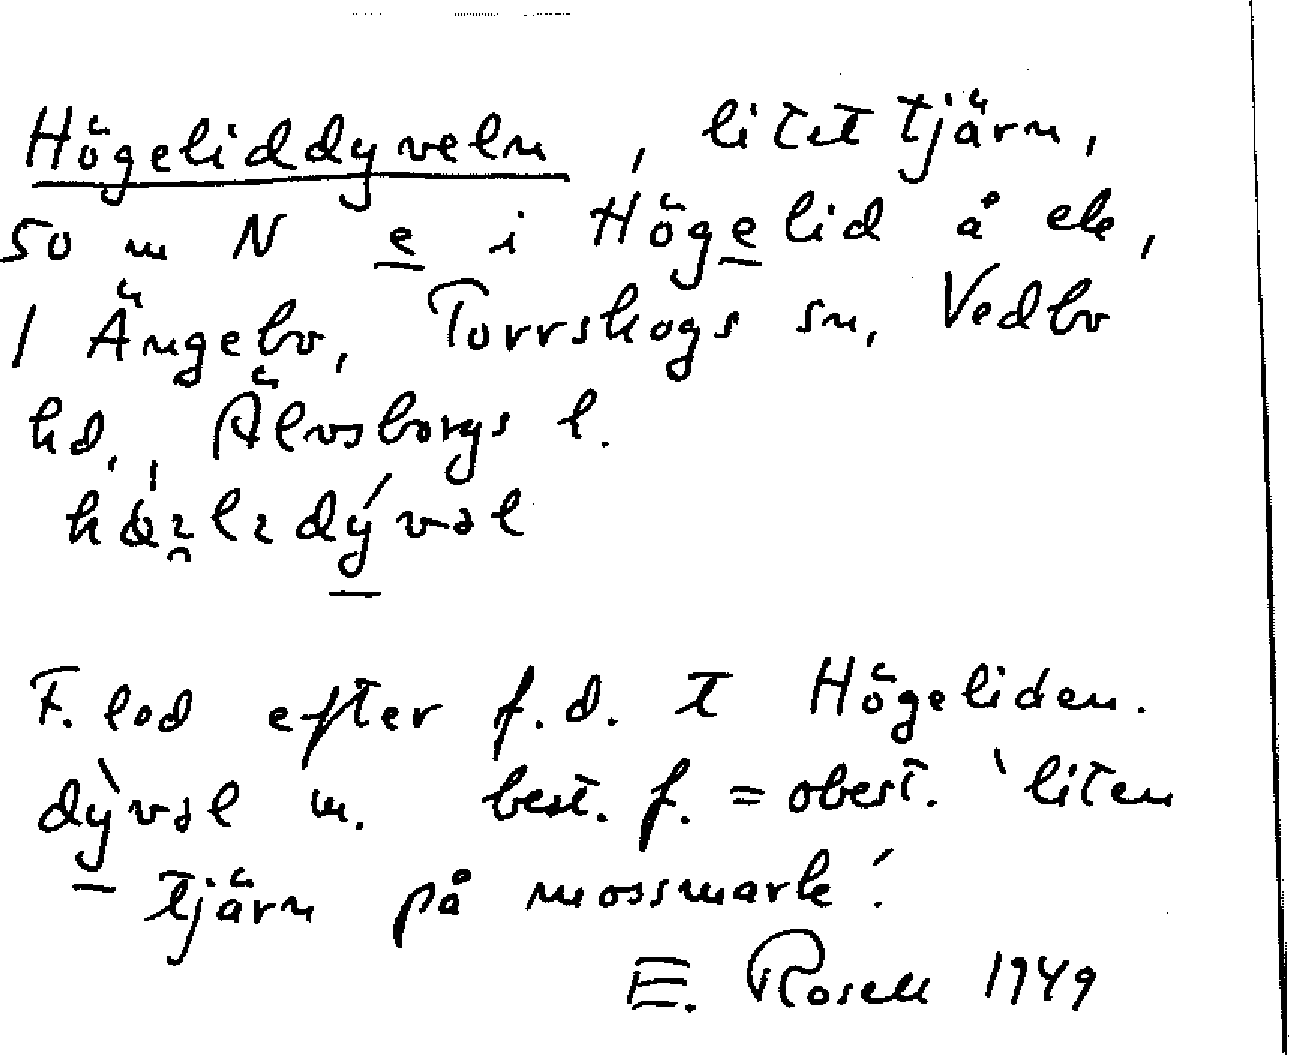 Högeliddyveln, litet tjärn,
50 m N e i Högelid å ek,
1 Ängebo, Torrskogs sn, Vedbo
hd., Älvsborgs l.
F. lod efter f.d. t Högeliden.
dỳvəl m. best. f. = obest. 'liten
tjärn på mossmark'.
E. Rosell 1949